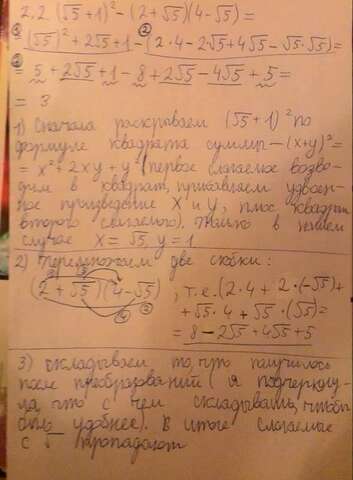 2.2. (√5+1)² - (2+√5)(4-√5) =
① ②
= (√5)² + 2√5 + 1 - (2·4 - 2√5 + 4√5 - √5·√5) =
③
= 5 + 2√5 + 1 - 8 + 2√5 - 4√5 + 5 =
= 3
1) Сначала раскрываем (√5+1)² по
формуле квадрата суммы - (x+y)² =
= x² + 2xy + y² (первое слагаемое возво-
дим в квадрат, прибавляем удвоен-
ное произведение X и Y, плюс квадрат
второго слагаемого). Только в нашем
случае X = √5, Y = 1
2) Перемножаем две скобки:
(2+√5)(4-√5), т.е. (2·4 + 2·(-√5) +
+ √5·4 + √5·(√5) =
= 8 - 2√5 + 4√5 + 5
3) складываем то, что получилось
после преобразований (я подчеркну-
ла, что с чем складывать, чтобы
было удобнее). В итоге слагаемые
с √ пропадают